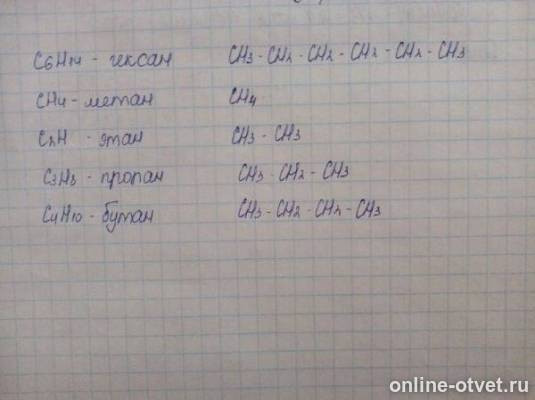 C6H14 - гексан CH3 - CH2 - CH2 - CH2 - CH2 - CH3
CH4 - метан CH4
C2H - этан CH3 - CH3
C3H8 - пропан CH3 - CH2 - CH3
C4H10 - бутан CH3 - CH2 - CH2 - CH3
online-otvet.ru